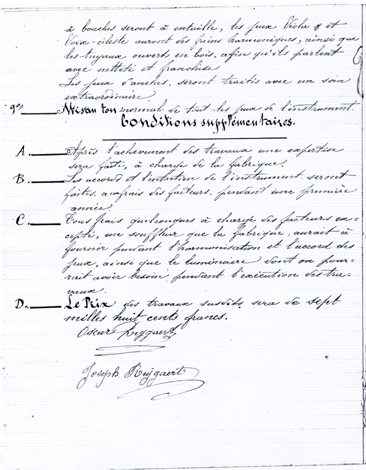 à bouches seront à entaille, les jeux Viola 8 et
Voix-céleste auront des freins harmoniques, ainsi que
les tuyaux ouverts en bois, afin qu'ils parlent
avec netteté et franchise.
Les jeux d'anches, seront traités avec un soin
extraordinaire.
9° Mis au ton normal de tout les jeux de l'instrument.
Conditions supplémentaires.
A. Après l'achevement des travaux une expertise
sera faite, à charge de la fabrique.
B. Les accords et l'entretien de l'instrument seront
faites, aux frais des facteurs, pendant une première
année.
C. Tous frais quelconques à charge des facteurs ex-
cepté, un souffleur que la fabrique, aurait à
fournir pendant l'harmonisation et l'accord des
jeux, ainsi que le luminaire dont on pour-
rait avoir besoin, pendant l'exécution des tra-
veaux.
D. Le Prix des travaux susdits, sera de sept
milles huit cents francs.
Oscar Reygaert
Joseph Reygaert